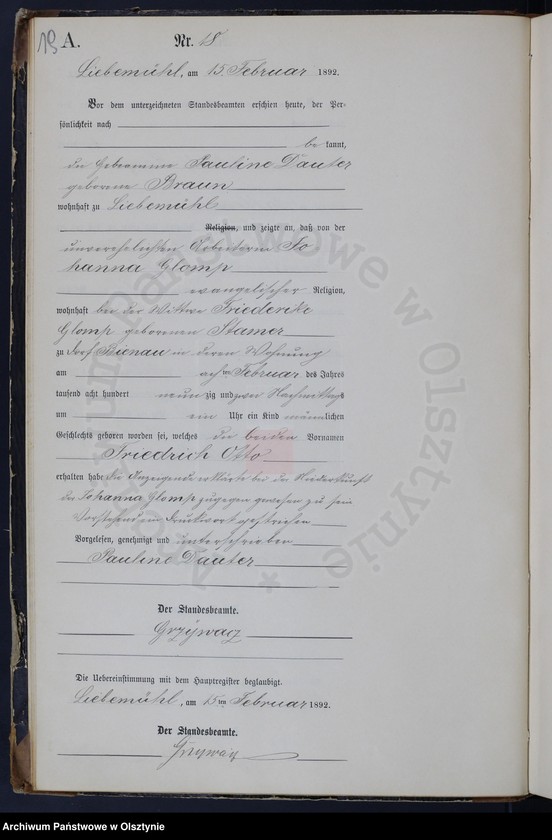 19 A.
Nr. 18
Liebemühl, am 15. Februar 1892.
Vor dem unterzeichneten Standesbeamten erschien heute, der Per-
sönlichkeit nach
be kannt,
die Hebeamme Pauline Dauter
geborene Braun
wohnhaft zu Liebemühl
Religion, und zeigte an, daß von der
unverehelichten Arbeiterin Jo
hanna Glomp
evangelischer Religion,
wohnhaft bei der Wittwe Friederike
Glomp geborenen Stamer
zu Dorf Bienau in deren Wohnung
am ach ten Februar des Jahres
tausend acht hundert neun zig und zwei Nachmittags
um ein Uhr ein Kind männlichen
Geschlechts geboren worden sei, welches die beiden Vornamen
Friedrich Otto
erhalten habe die Anzeigende erklärte bei der Niederkunft
der Johanna Glomp zugegen gewesen zu sein
Vorstehend ein Druckwort gestrichen
Vorgelesen, genehmigt und unterschrieben
Pauline Dauter
Der Standesbeamte.
Grzywacz
Die Uebereinstimmung mit dem Hauptregister beglaubigt.
Liebemühl, am 15 ten Februar 1892.
Der Standesbeamte.
Grzywacz
Archiwum Państwowe w Olsztynie *
Archiwum Państwowe w Olsztynie